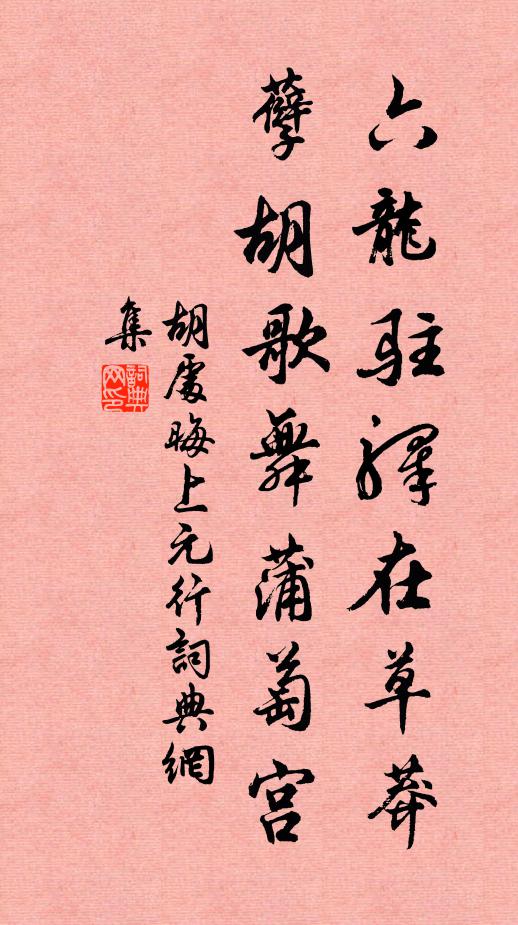 六龍駐驛在草莽
孽胡歌舞蒲萄宮
胡處晦上元行詞典網
集
詞典網印